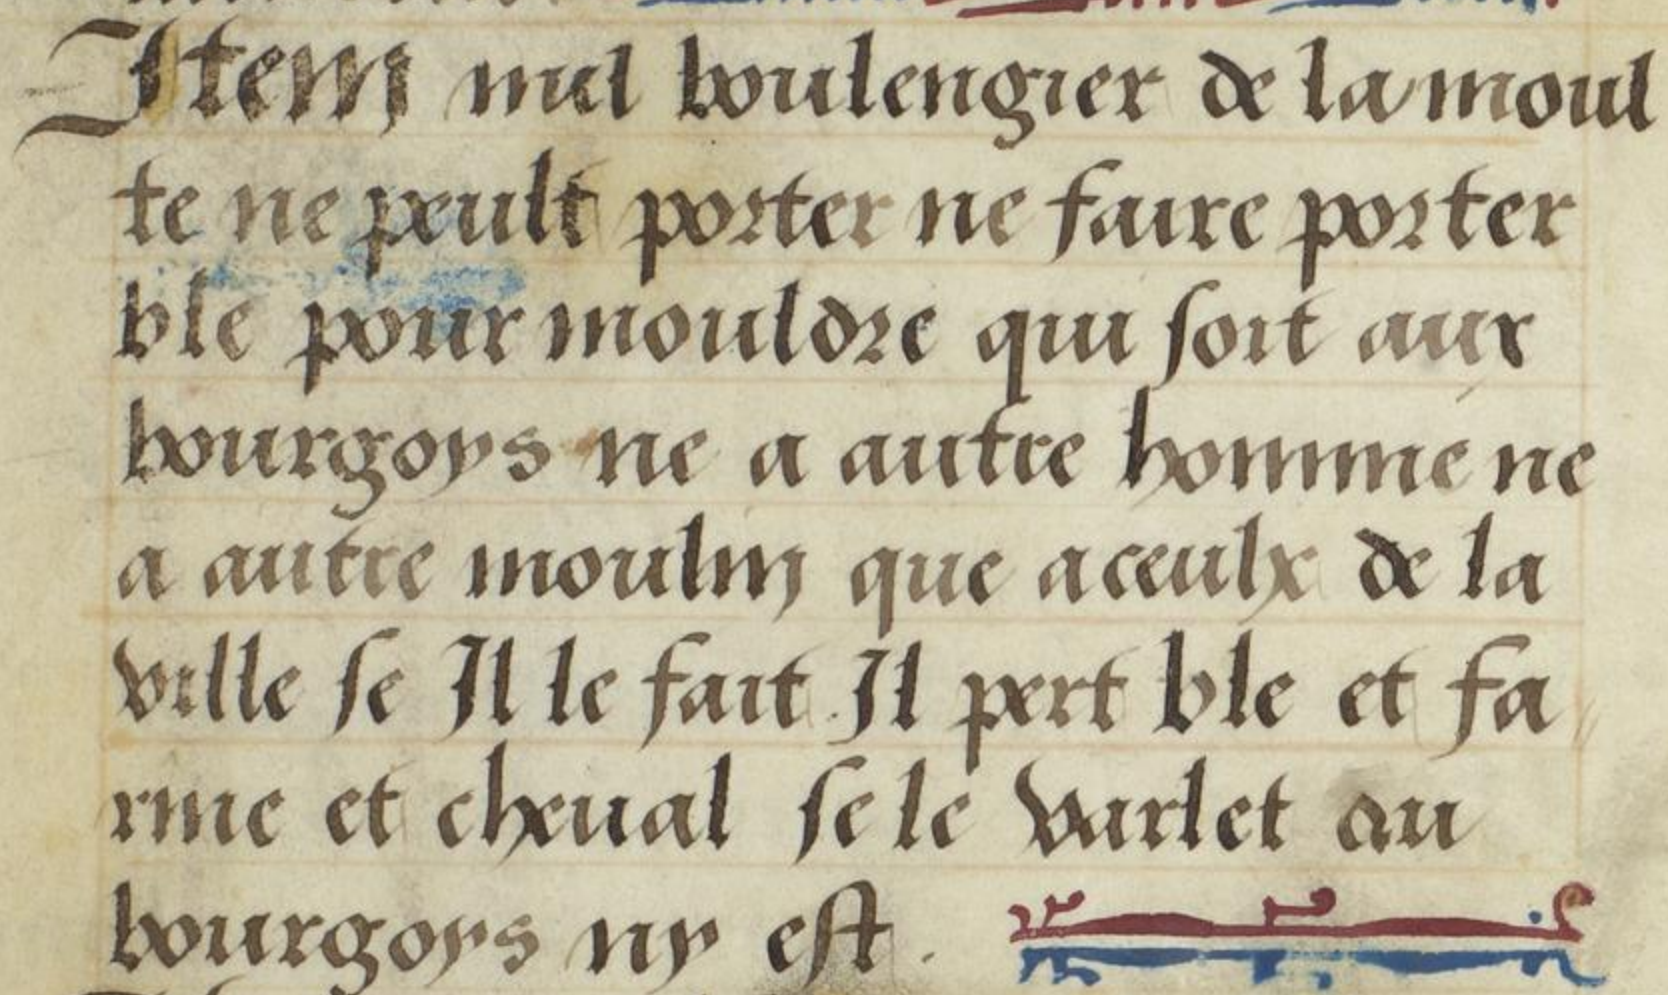 Item nul boulengier de la moul
te ne peult porter ne faire porter
ble pour mouldre qui soit aux
bourgoys ne a autre homme ne
a autre moulin que a ceulx de la
ville se Il le fait Il pert ble et fa
rine et cheual se le varlet au
bourgoys ny est.